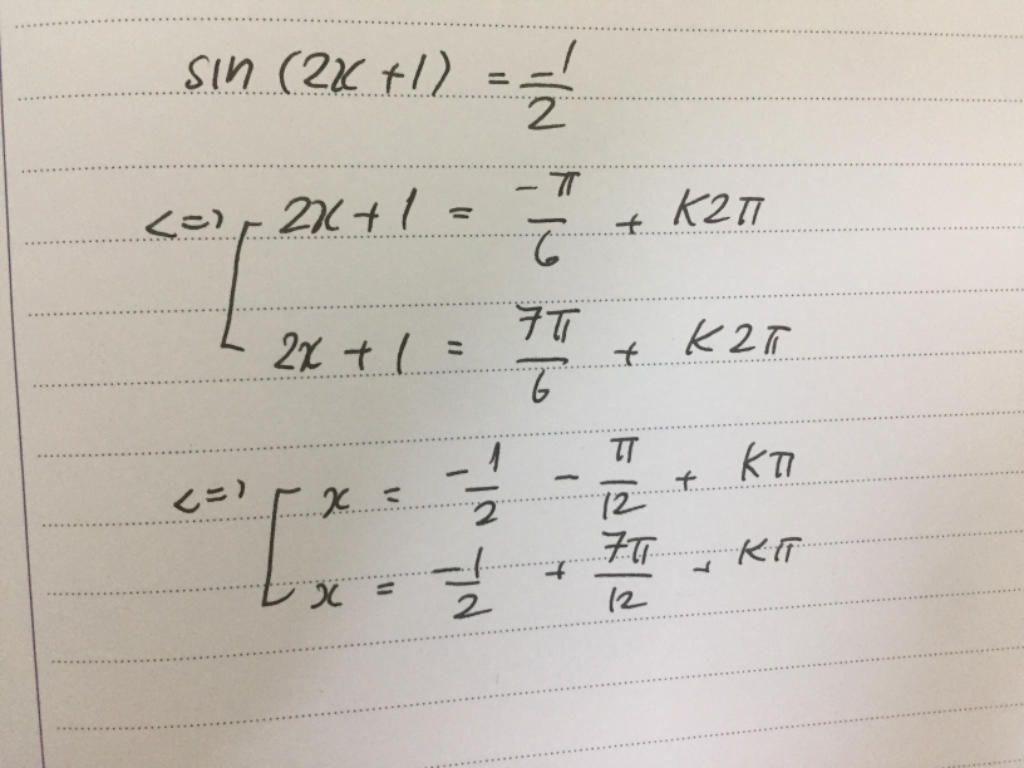 sin (2x + 1) = -1/2
<=> [ 2x + 1 = -π/6 + K2π
2x + 1 = 7π/6 + K2π
<=> [ x = -1/2 - π/12 + Kπ
x = -1/2 + 7π/12 + Kπ